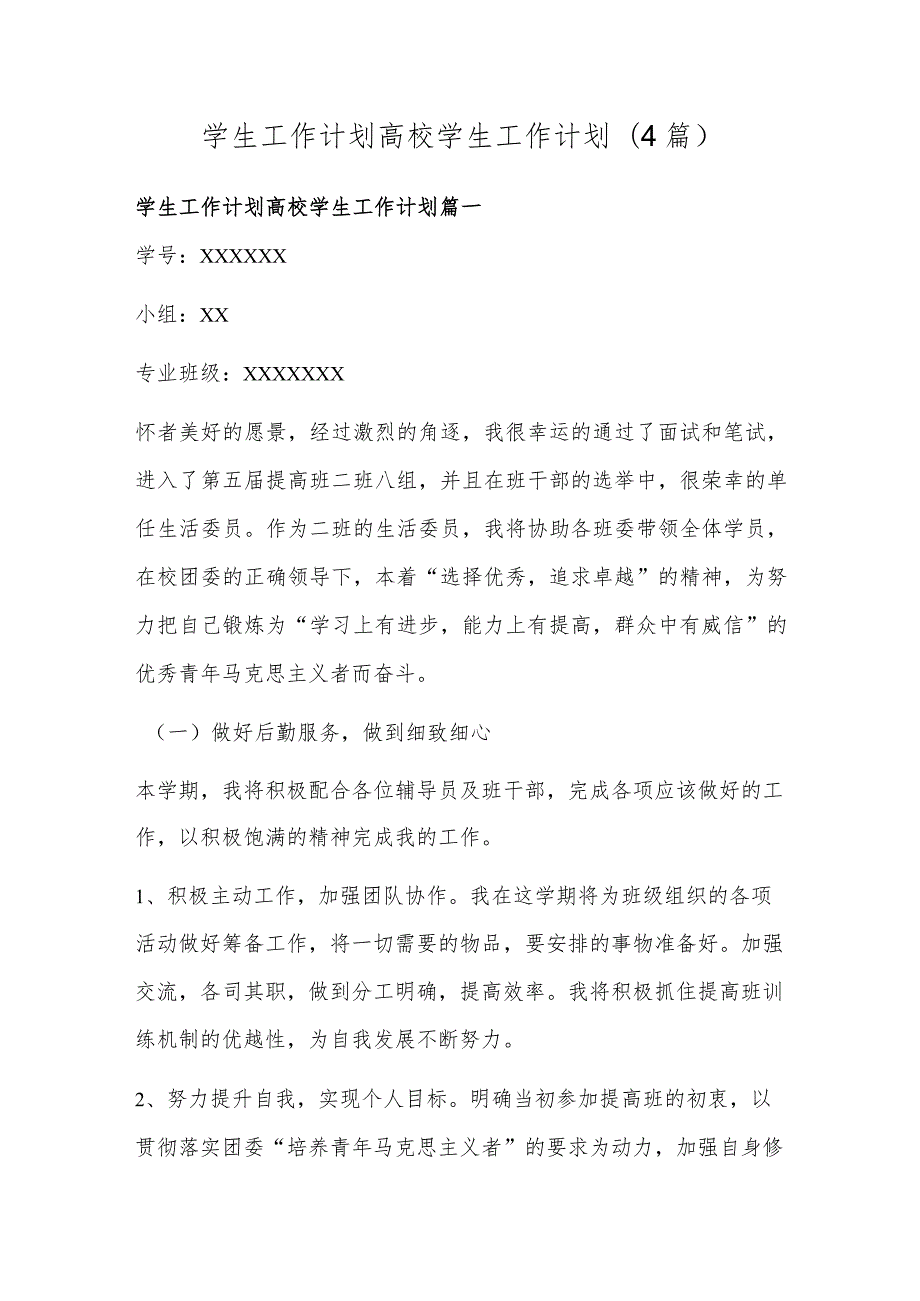 学生工作计划高校学生工作计划（4 篇）
学生工作计划高校学生工作计划篇一
学号：XXXXXX
小组：XX
专业班级：XXXXXXX
怀者美好的愿景，经过激烈的角逐，我很幸运的通过了面试和笔试，
进入了第五届提高班二班八组，并且在班干部的选举中，很荣幸的单
任生活委员。作为二班的生活委员，我将协助各班委带领全体学员，
在校团委的正确领导下，本着“选择优秀，追求卓越”的精神，为努
力把自己锻炼为“学习上有进步，能力上有提高，群众中有威信”的
优秀青年马克思主义者而奋斗。
（一）做好后勤服务，做到细致细心
本学期，我将积极配合各位辅导员及班干部，完成各项应该做好的工
作，以积极饱满的精神完成我的工作。
1、积极主动工作，加强团队协作。我在这学期将为班级组织的各项
活动做好筹备工作，将一切需要的物品，要安排的事物准备好。加强
交流，各司其职，做到分工明确，提高效率。我将积极抓住提高班训
练机制的优越性，为自我发展不断努力。
2、努力提升自我，实现个人目标。明确当初参加提高班的初衷，以
贯彻落实团委“培养青年马克思主义者”的要求为动力，加强自身修